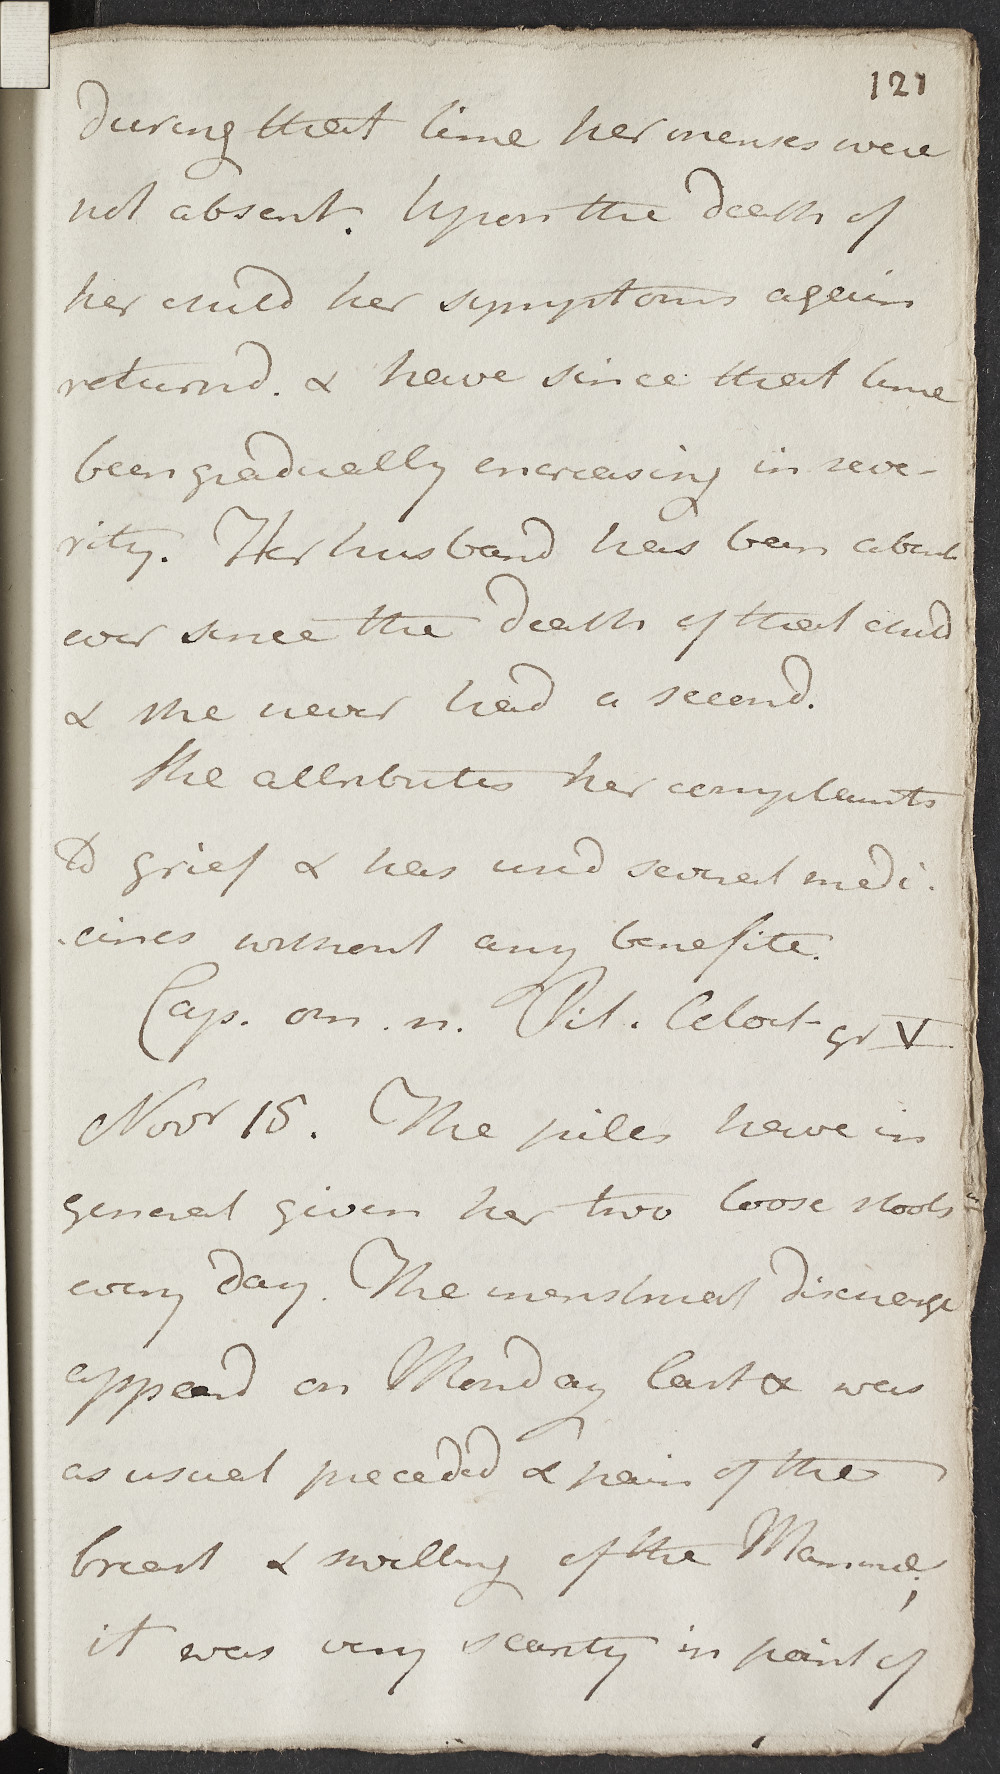 121
during that time her menses were
not absent. Upon the death of
her child her symptoms again
returnd. & have since that time
been gradually encreasing in seve-
rity. Her husband has been absent
ever since the death of that child
& she never had a second.
She attributes her complaints
to grief & has used several medi-
-cines without any benefite.
Cap. om. n. Pil. Coloct gr V
Novr 15. The piles have in
general given her two loose stools
every day. The menstrual discharge
appeard on Monday last & was
as usual preceded & pain of the
breast & swelling of the Mammae;
it was very scanty in point of